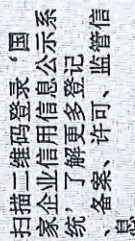 扫描二维码登录‘国
家企业信用信息公示系
统’了解更多登记
、备案、许可、监管信
息